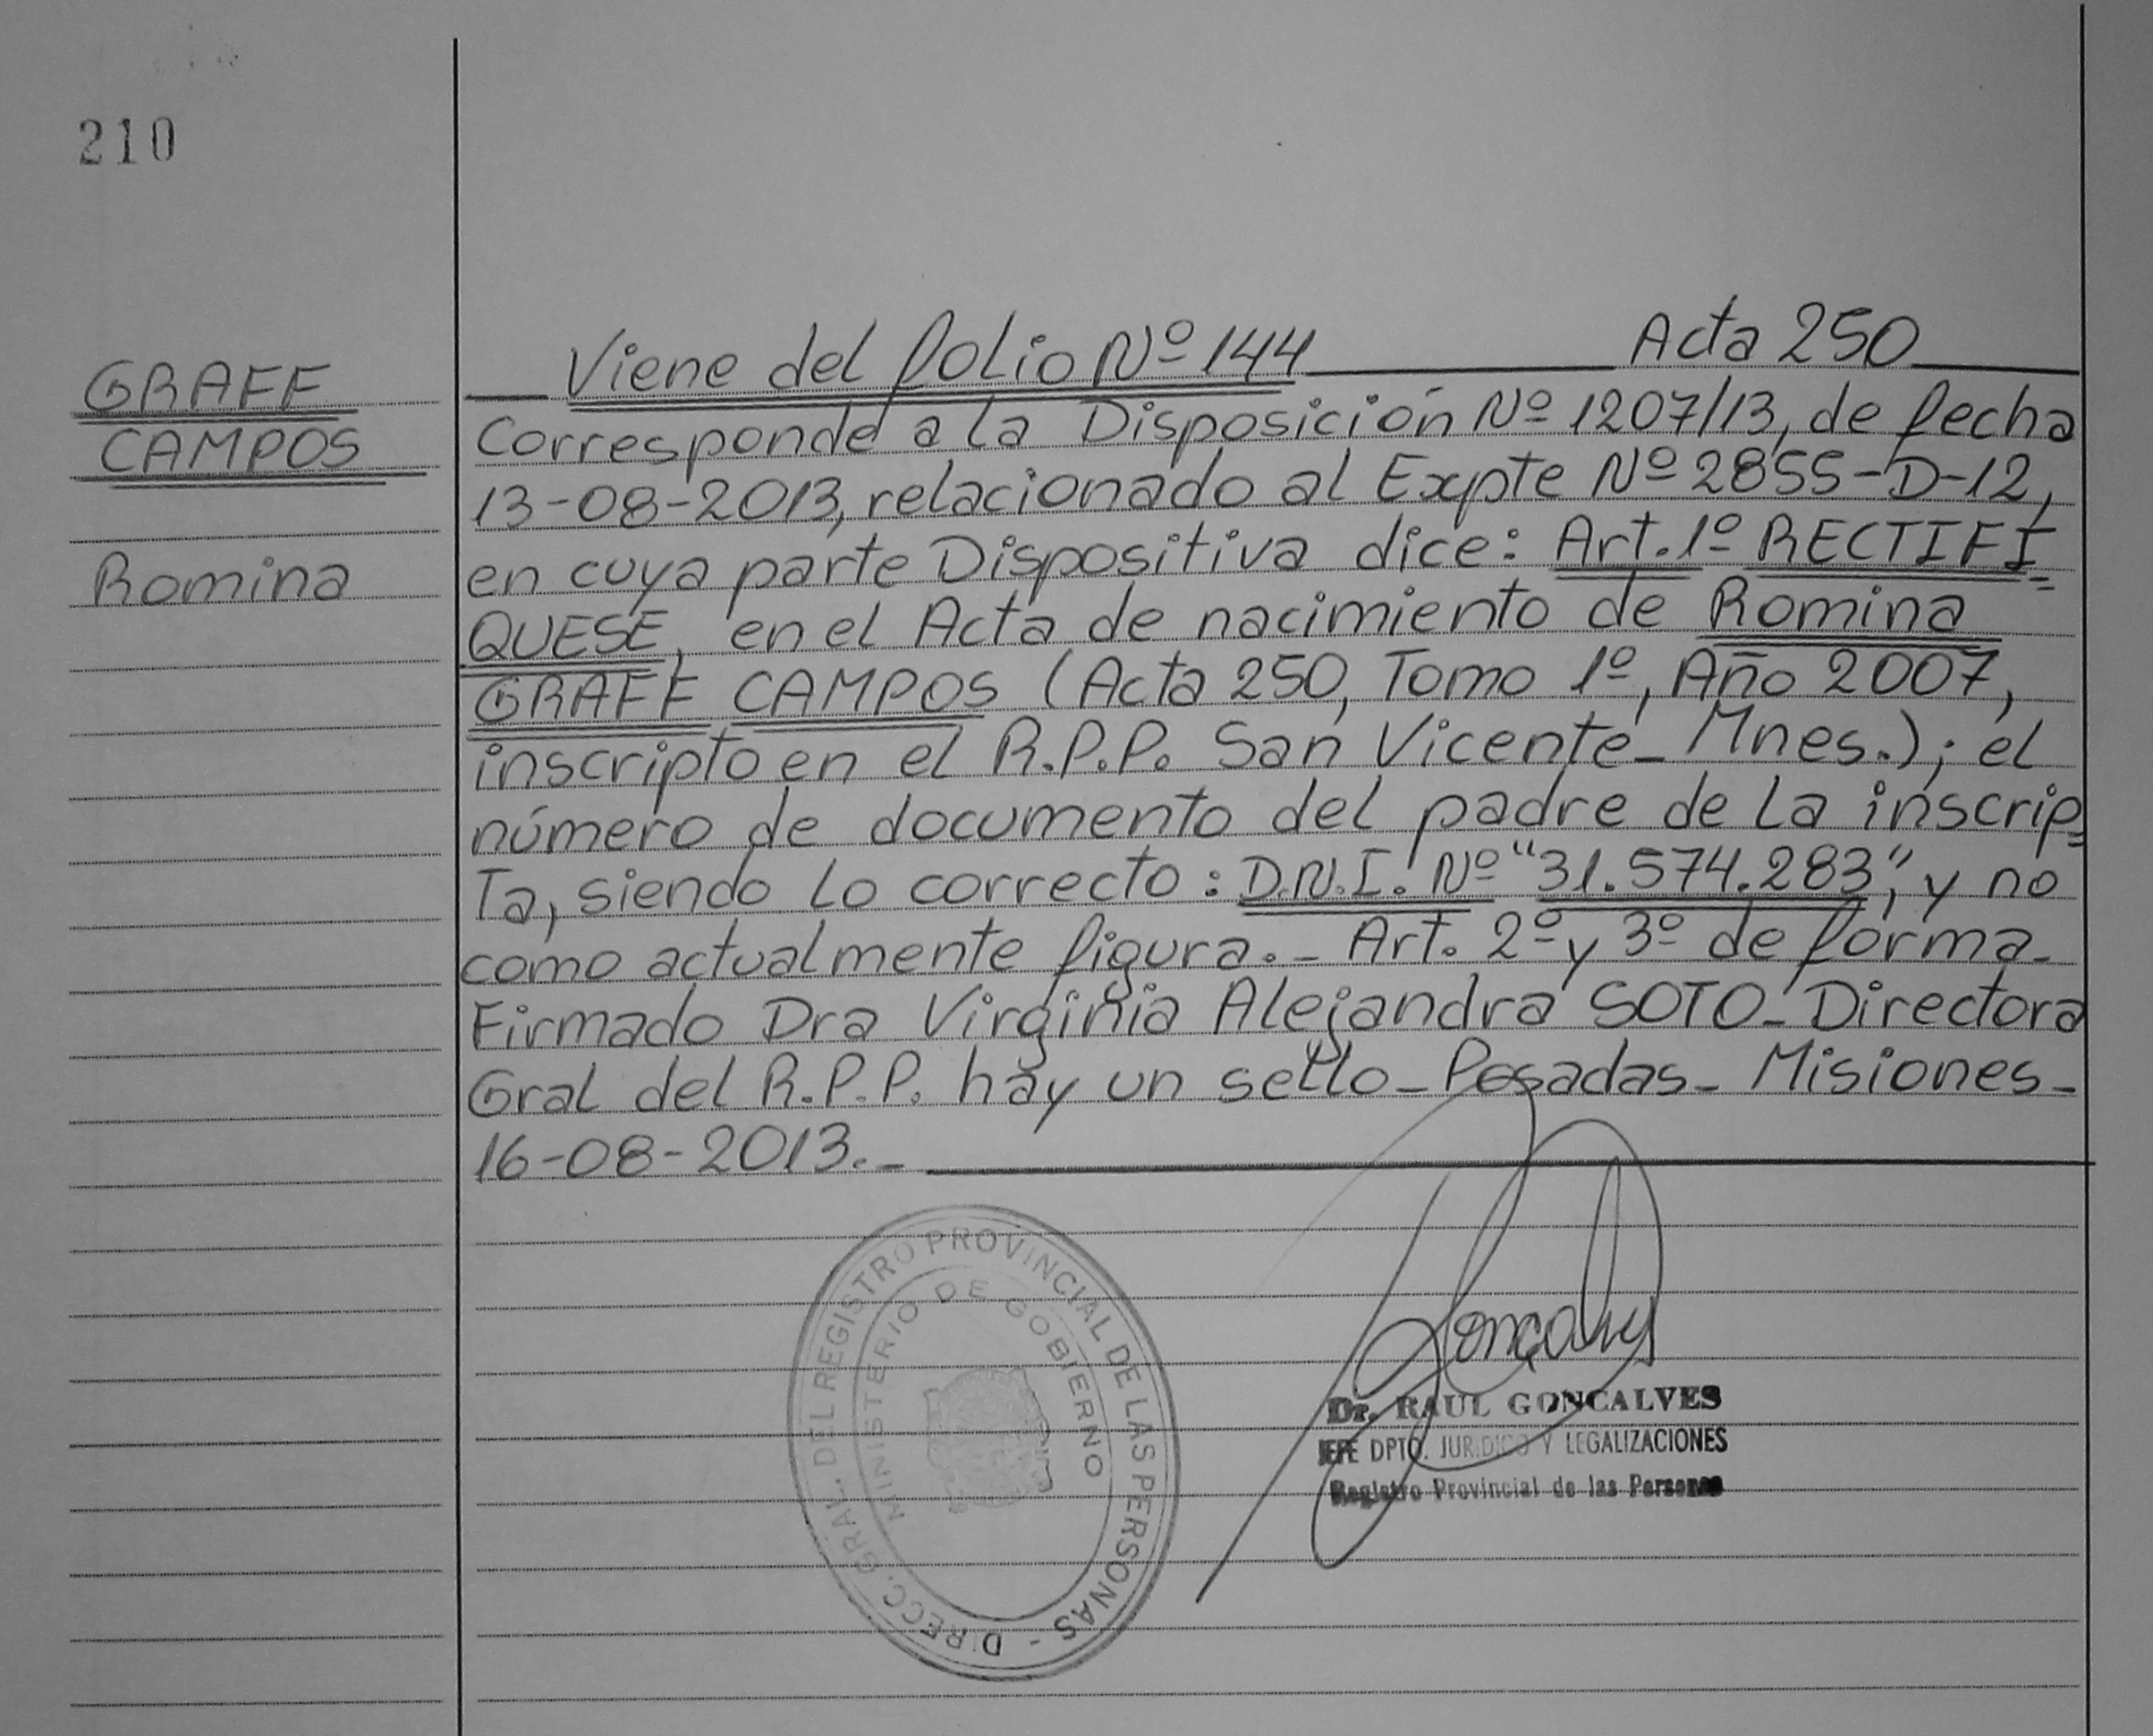 210
GRAFF
CAMPOS
Romina
Viene del folio Nº 144 Acta 250
Corresponde a la Disposición Nº 1207/13, de fecha
13-08-2013, relacionado al Expte Nº 2855-D-12,
en cuya parte Dispositiva dice: Art. 1º RECTIFI-
QUESE, en el Acta de nacimiento de Romina
GRAFF CAMPOS (Acta 250, Tomo 1º, Año 2007,
inscripto en el R.P.P. San Vicente_ Mnes.); el
número de documento del padre de la inscrip-
Ta, siendo lo correcto: D.N.I. Nº "31.574.283", y no
como actualmente figura._ Art. 2º y 3º de forma_
Firmado Dra Virginia Alejandra SOTO_ Directora
Gral del R.P.P. hay un sello_ Posadas_ Misiones_
16-08-2013._
DIRECC. GRAL. DEL REGISTRO PROVINCIAL DE LAS PERSONAS -
MINISTERIO DE GOBIERNO
Goncalves
Dr. RAUL GONCALVES
JEFE DPTO. JURIDICO Y LEGALIZACIONES
Registro Provincial de las Personas